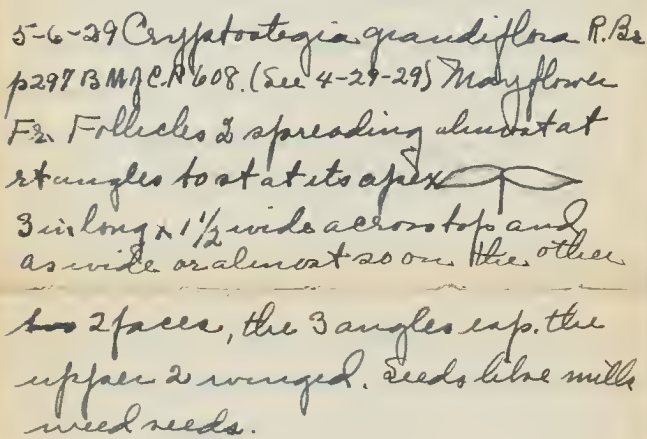 5-6-29 Cryptostegia grandiflora R.Br
p297 B M J C.P. 608. (See 4-29-29) Mayflower
Fr. Follicles 2 spreading almost at
rt angles to st at its apex
3 in long x 1 1/2 wide across top and
as wide or almost so on the other
2 faces, the 3 angles esp. the
upper 2 winged. Seeds like milk
weed seeds.